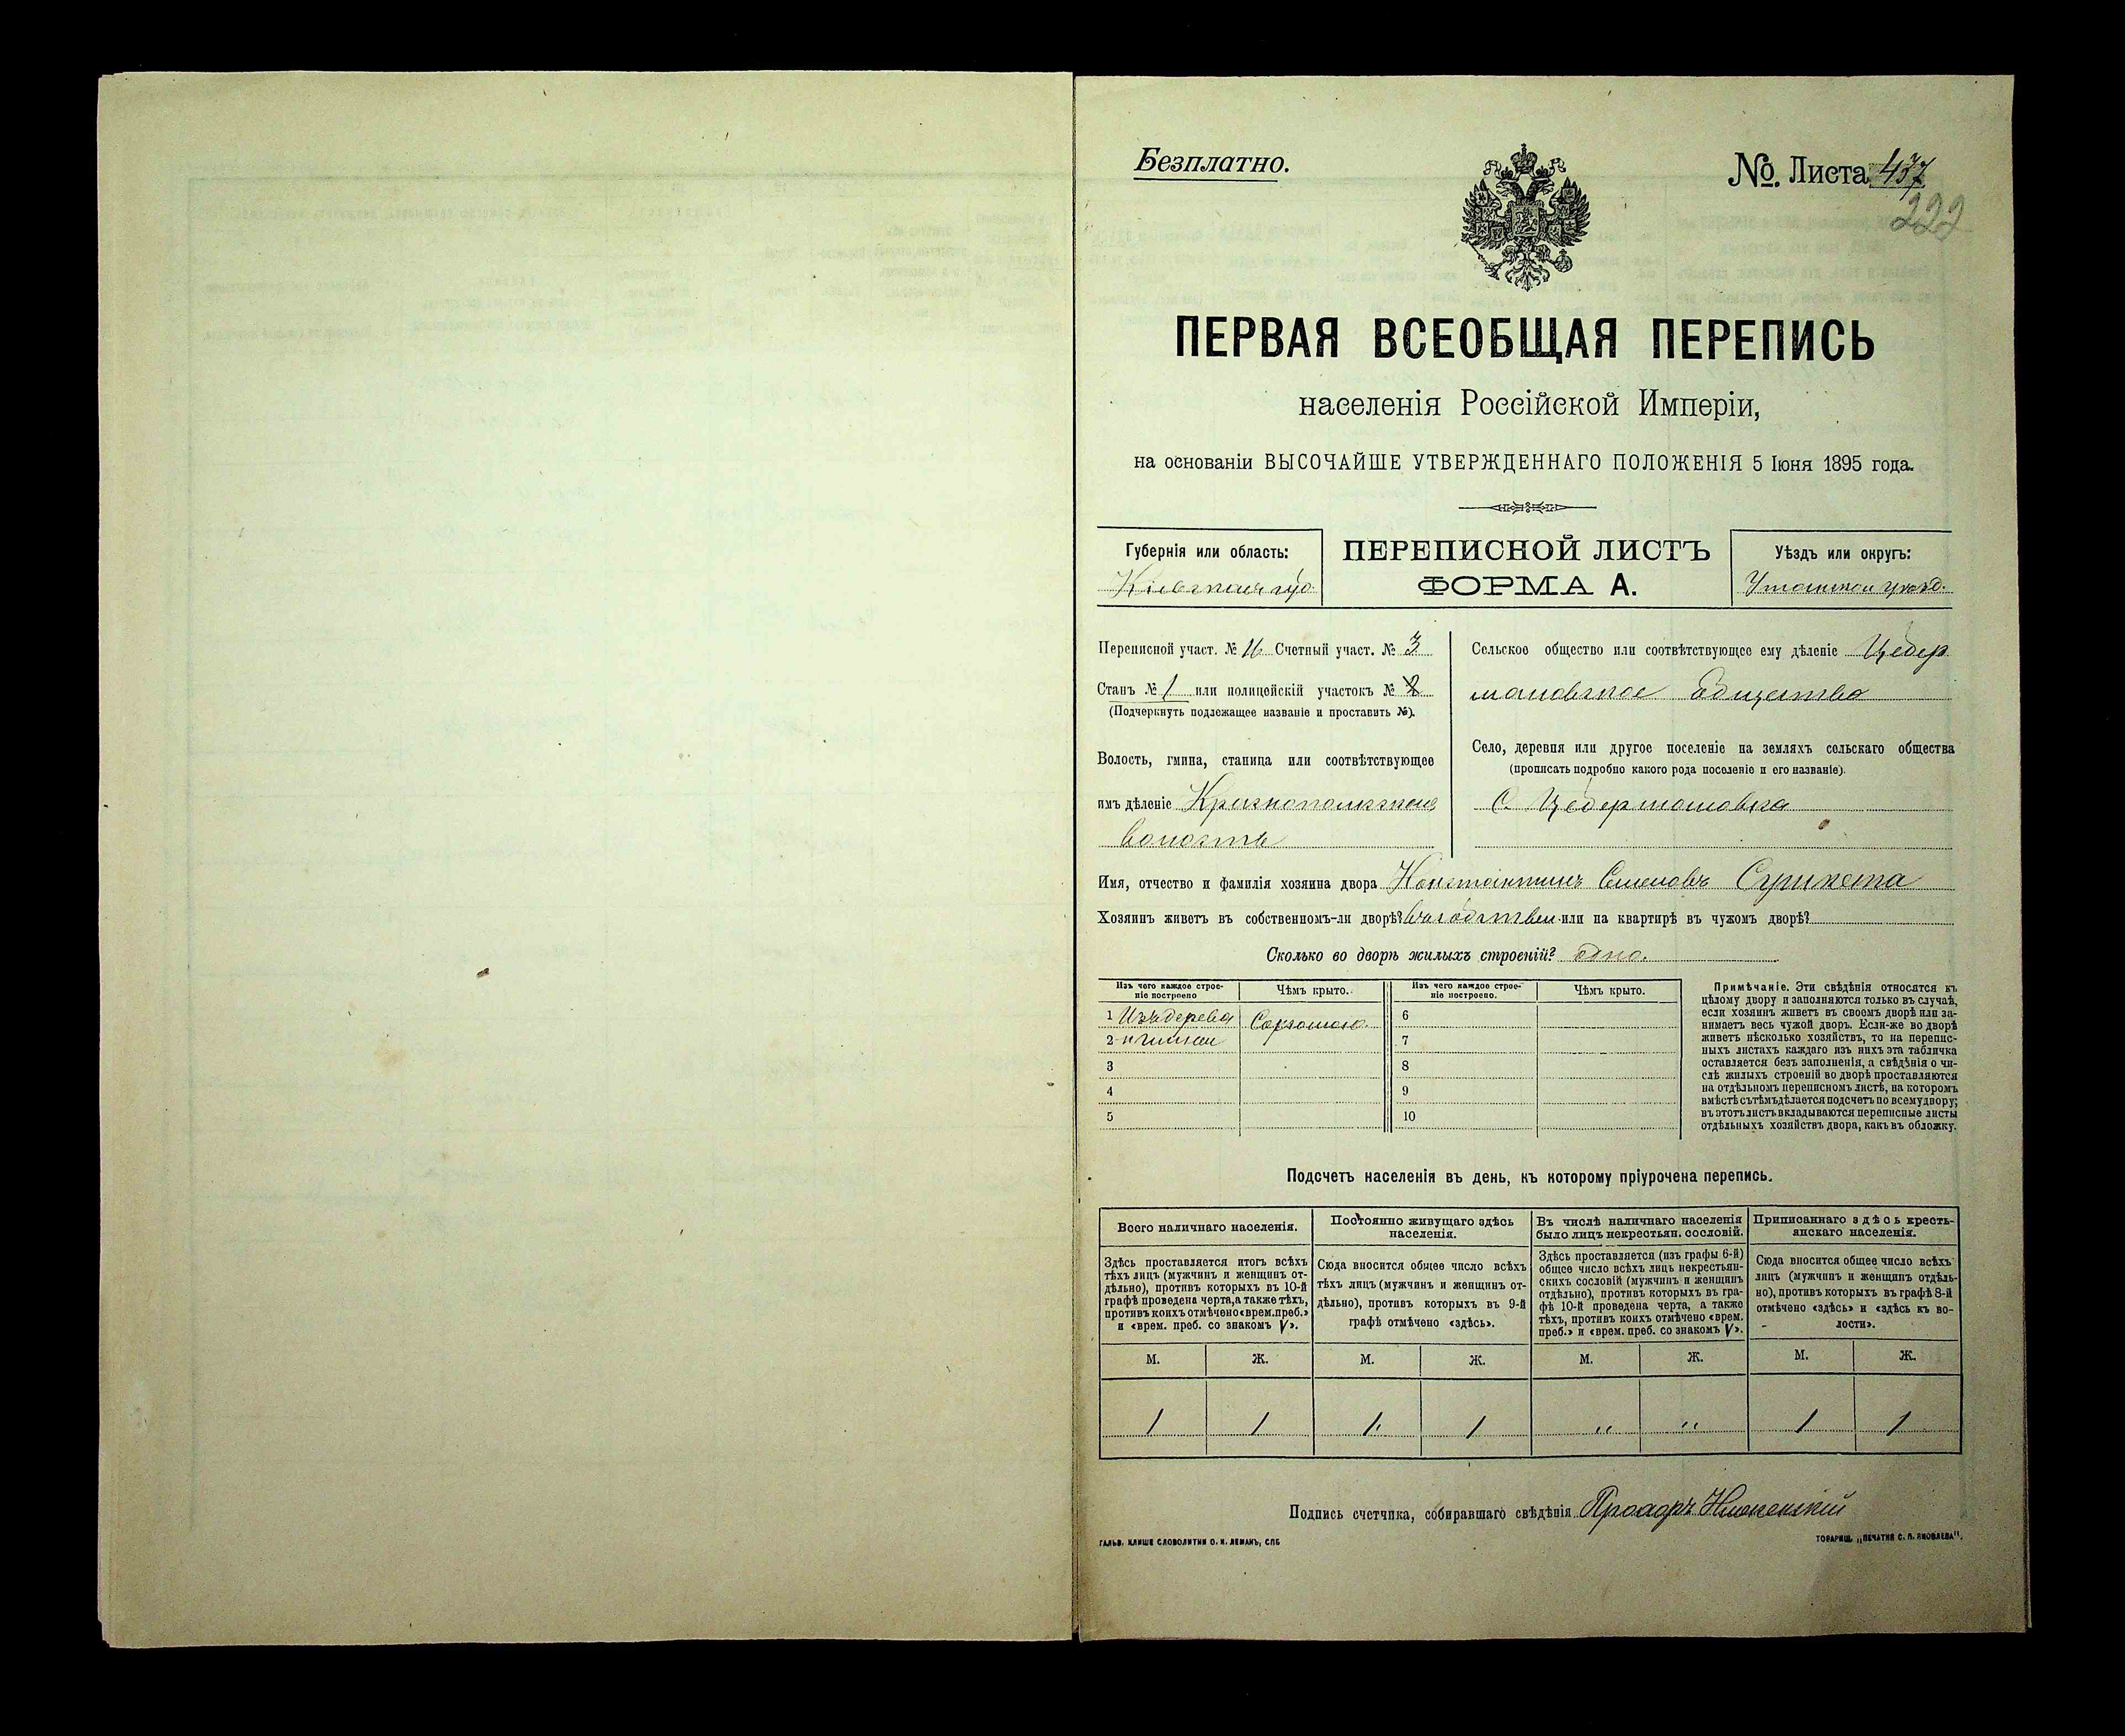 Безплатно.
№. Листа 437
222
ПЕРВАЯ ВСЕОБЩАЯ ПЕРЕПИСЬ
населенія Россійской Имперіи,
на основаніи ВЫСОЧАЙШЕ УТВЕРЖДЕННАГО ПОЛОЖЕНІЯ 5 Іюня 1895 года.
Губернія или область:
Кіевская губ.
ПЕРЕПИСНОЙ ЛИСТЪ
ФОРМА А.
Уѣздъ или округъ:
Уманскои уѣзд.
Переписной участ. № 16 Счетный участ. № 3
Станъ № 1 или полицейскій участокъ № 2
(Подчеркнуть подлежащее названіе и проставить №).
Волость, гмина, станица или соотвѣтствующее
имъ дѣленіе Краснопольская
волость
Сельское общество или соотвѣтствующее ему дѣленіе Цебер
мановское Общество
Село, деревня или другое поселеніе на земляхъ сельскаго общества
(прописать подробно какого рода поселеніе и его названіе).
С. Цебермановка
Имя, отчество и фамилія хозяина двора Константинъ Семеновъ
Хозяинъ живетъ въ собственномъ-ли дворѣ? или на квартирѣ въ чужомъ дворѣ?
Сколько во дворѣ жилыхъ строеній? одно.
Изъ чего каждое строе-
ніе построено
Чѣмъ крыто.
Изъ чего каждое строе-
ніе построено.
Чѣмъ крыто.
1 Изъ дерева Соломою
2 и глины
3
4
5
6
7
8
9
10
Примѣчаніе. Эти свѣдѣнія относятся къ
цѣлому двору и заполняются только въ случаѣ,
если хозяинъ живетъ въ своемъ дворѣ или за-
нимаетъ весь чужой дворъ. Если-же во дворѣ
живетъ нѣсколько хозяйствъ, то на перепис-
ныхъ листахъ каждаго изъ нихъ эта табличка
оставляется безъ заполненія, а свѣдѣнія о чи-
слѣ жилыхъ строеній во дворѣ проставляются
на отдѣльномъ переписномъ листѣ, на которомъ
вмѣстѣ съ тѣмъ дѣлается подсчетъ по всему двору;
въ этотъ листъ вкладываются переписные листы
отдѣльныхъ хозяйствъ двора, какъ въ обложку.
Подсчетъ населенія въ день, къ которому пріурочена перепись.
Всего наличнаго населенія.
Здѣсь проставляется итогъ всѣхъ
тѣхъ лицъ (мужчинъ и женщинъ от-
дѣльно), противъ которыхъ въ 10-й
графѣ проведена черта, а также тѣхъ,
противъ коихъ отмѣчено «врем. преб.»
и «врем. преб. со знакомъ V».
Постоянно живущаго здѣсь
населенія.
Сюда вносится общее число всѣхъ
тѣхъ лицъ (мужчинъ и женщинъ от-
дѣльно), противъ которыхъ въ 9-й
графѣ отмѣчено «здѣсь».
Въ числѣ наличнаго населенія
было лицъ некрестьян. сословій.
Здѣсь проставляется (изъ графы 6-й)
общее число всѣхъ лицъ некрестьян-
скихъ сословій (мужчинъ и женщинъ
отдѣльно), противъ которыхъ въ гра-
фѣ 10-й проведена черта, а также
тѣхъ, противъ коихъ отмѣчено «врем.
преб.» и «врем. преб. со знакомъ V».
Приписаннаго здѣсь кресть-
янскаго населенія.
Сюда вносится общее число всѣхъ
лицъ (мужчинъ и женщинъ отдѣль-
но), противъ которыхъ въ графѣ 8-й
отмѣчено «здѣсь» и «здѣсь къ во-
лости».
М. Ж. М. Ж. М. Ж. М. Ж.
1 1 1 1 " " 1 1
Подпись счетчика, собиравшаго свѣдѣнія Прохоръ
ГАЛЬВ. КЛИШЕ СЛОВОЛИТНИ О. И. ЛЕМАНЪ, СПБ
ТОВАРИЩ. „ПЕЧАТНЯ С. П. ЯКОВЛЕВА".